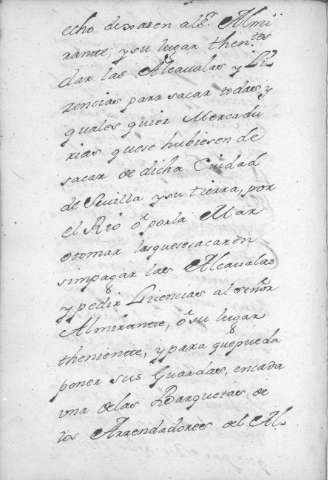 echo dexasen al Sr. Almi
rante; y su lugar thentes
dar las Alcavalas y Li
zencias para sacar todas, y
quales quier Mercadu
rias que se hubiesen de
sacar de dicha Ciudad
de Sevilla y su tierra, por
el Rio o por la Mar
o tomar las que se sacaron
sin pagar las Alcavalas
y pedir Licencias al señor
Almirante, o su lugar
theniente, y para que pueda
poner sus Guardas, en cada
una de las Barquetas de
los Arrendadores del Al